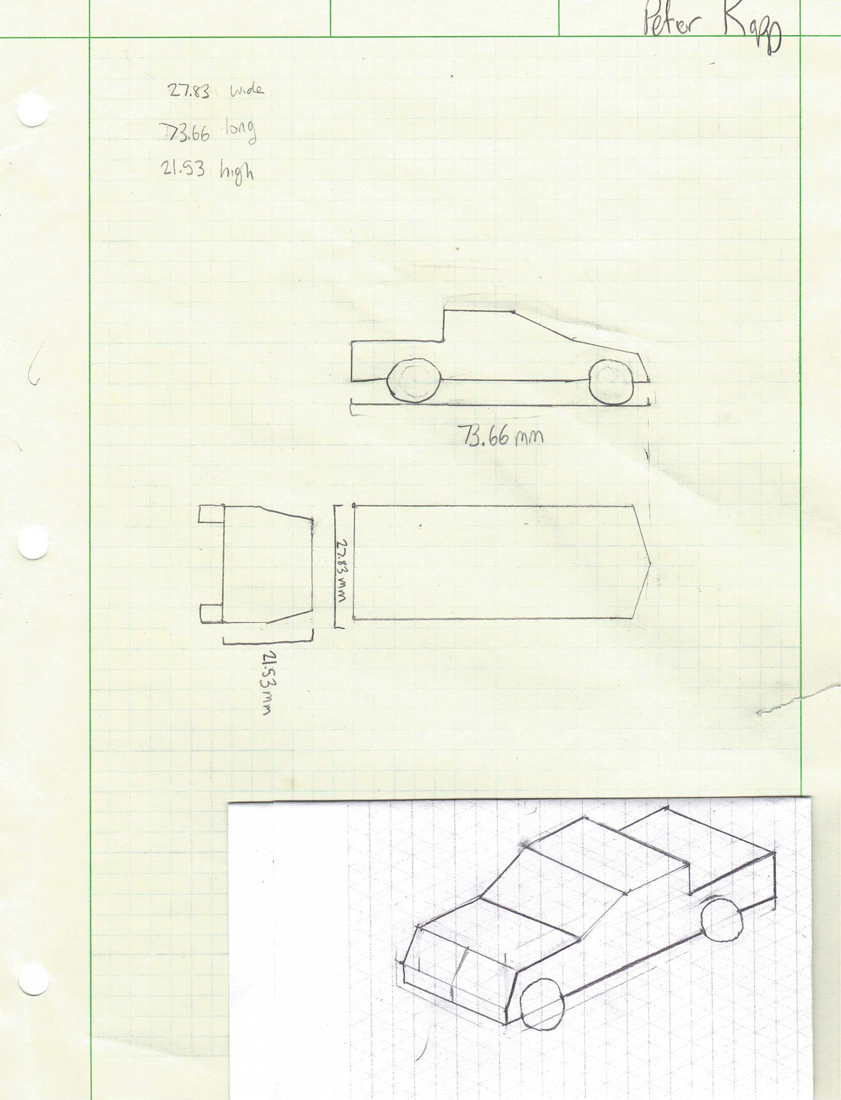 Peter Kapp
27.83 wide
73.66 long
21.53 high
73.66 mm
27.83 mm
21.53 mm